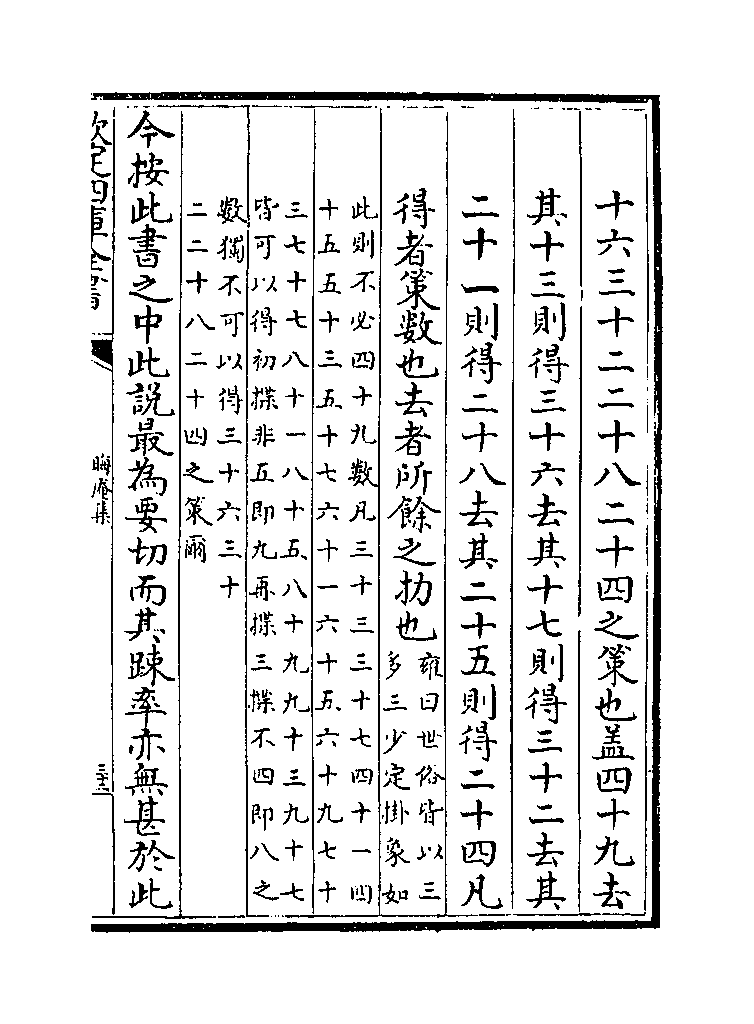 十六三十二二十八二十四之策也盖四十九去
其十三則得三十六去其十七則得三十二去其
二十一則得二十八去其二十五則得二十四凡
得者策數也去者所餘之扐也
雍曰世俗皆以三
多三少定掛象如
此則不必四十九數凡三十三三十七四十一四
十五五十三五十七六十一六十五六十九七十
三七十七八十一八十五八十九九十三九十七
皆可以得初揲非五即九再揲三揲不四即八之
數獨不可以得三十六三十
二二十八二十四之策爾
今按此書之中此說最為要切而其踈率亦無甚於此
欽定四庫全書
晦庵集